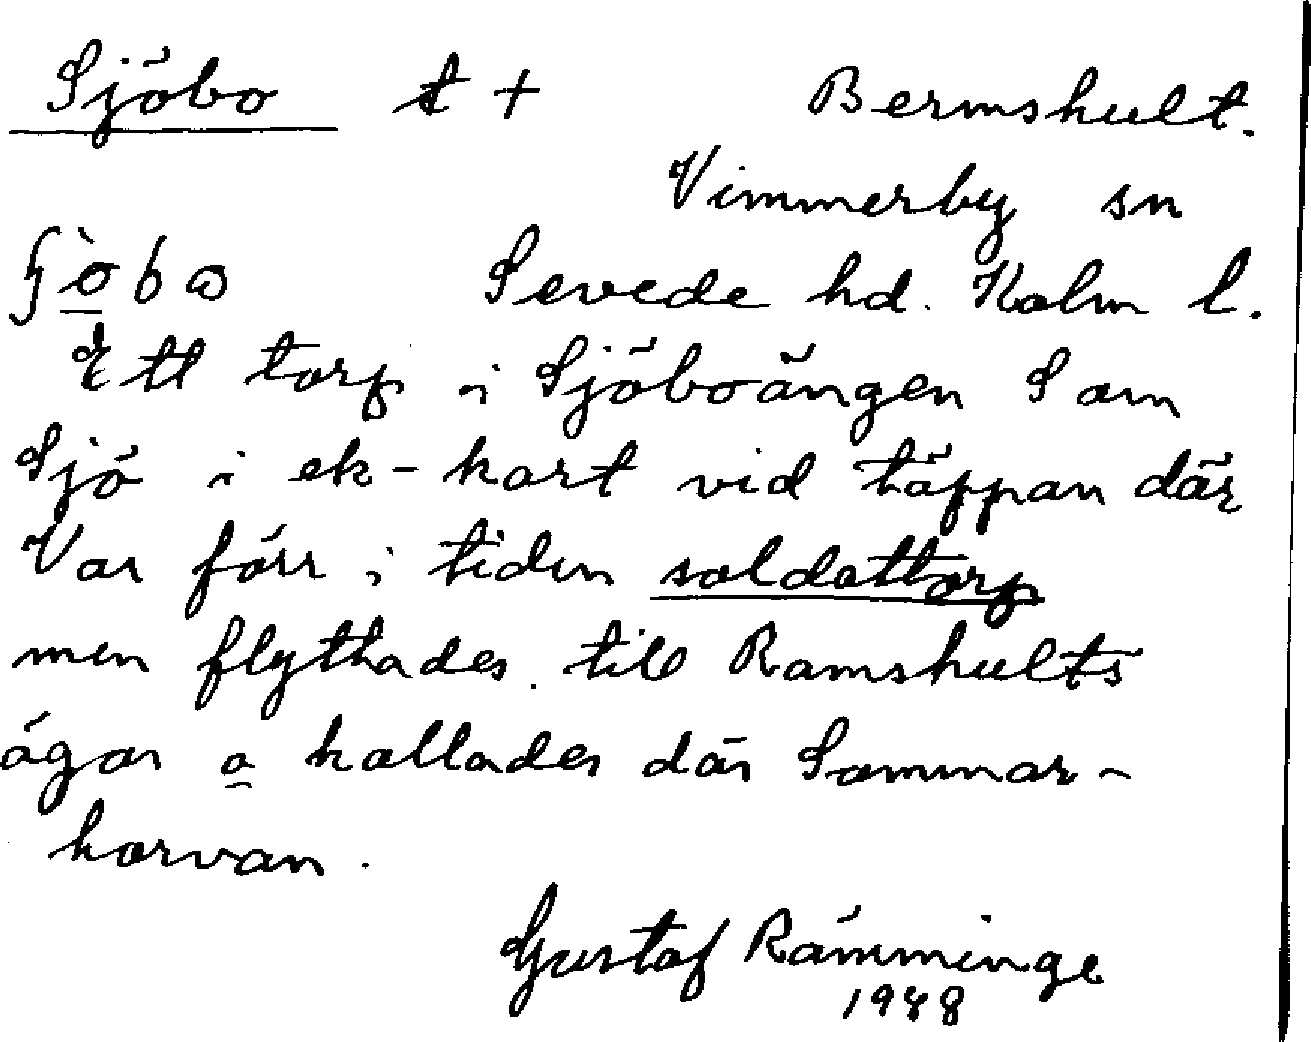 Sjöbo t +
Bermshult.
Vimmerby sn
Sevede hd. Kalm l.
Ett torp i Sjöboängen Som
Sjö i ek-kart vid täppan där
Var förr i tiden soldattorp
men flyttades till Ramshults
ägor o kallades där Sammar-
korvan.
Gustaf Rämminge
1948